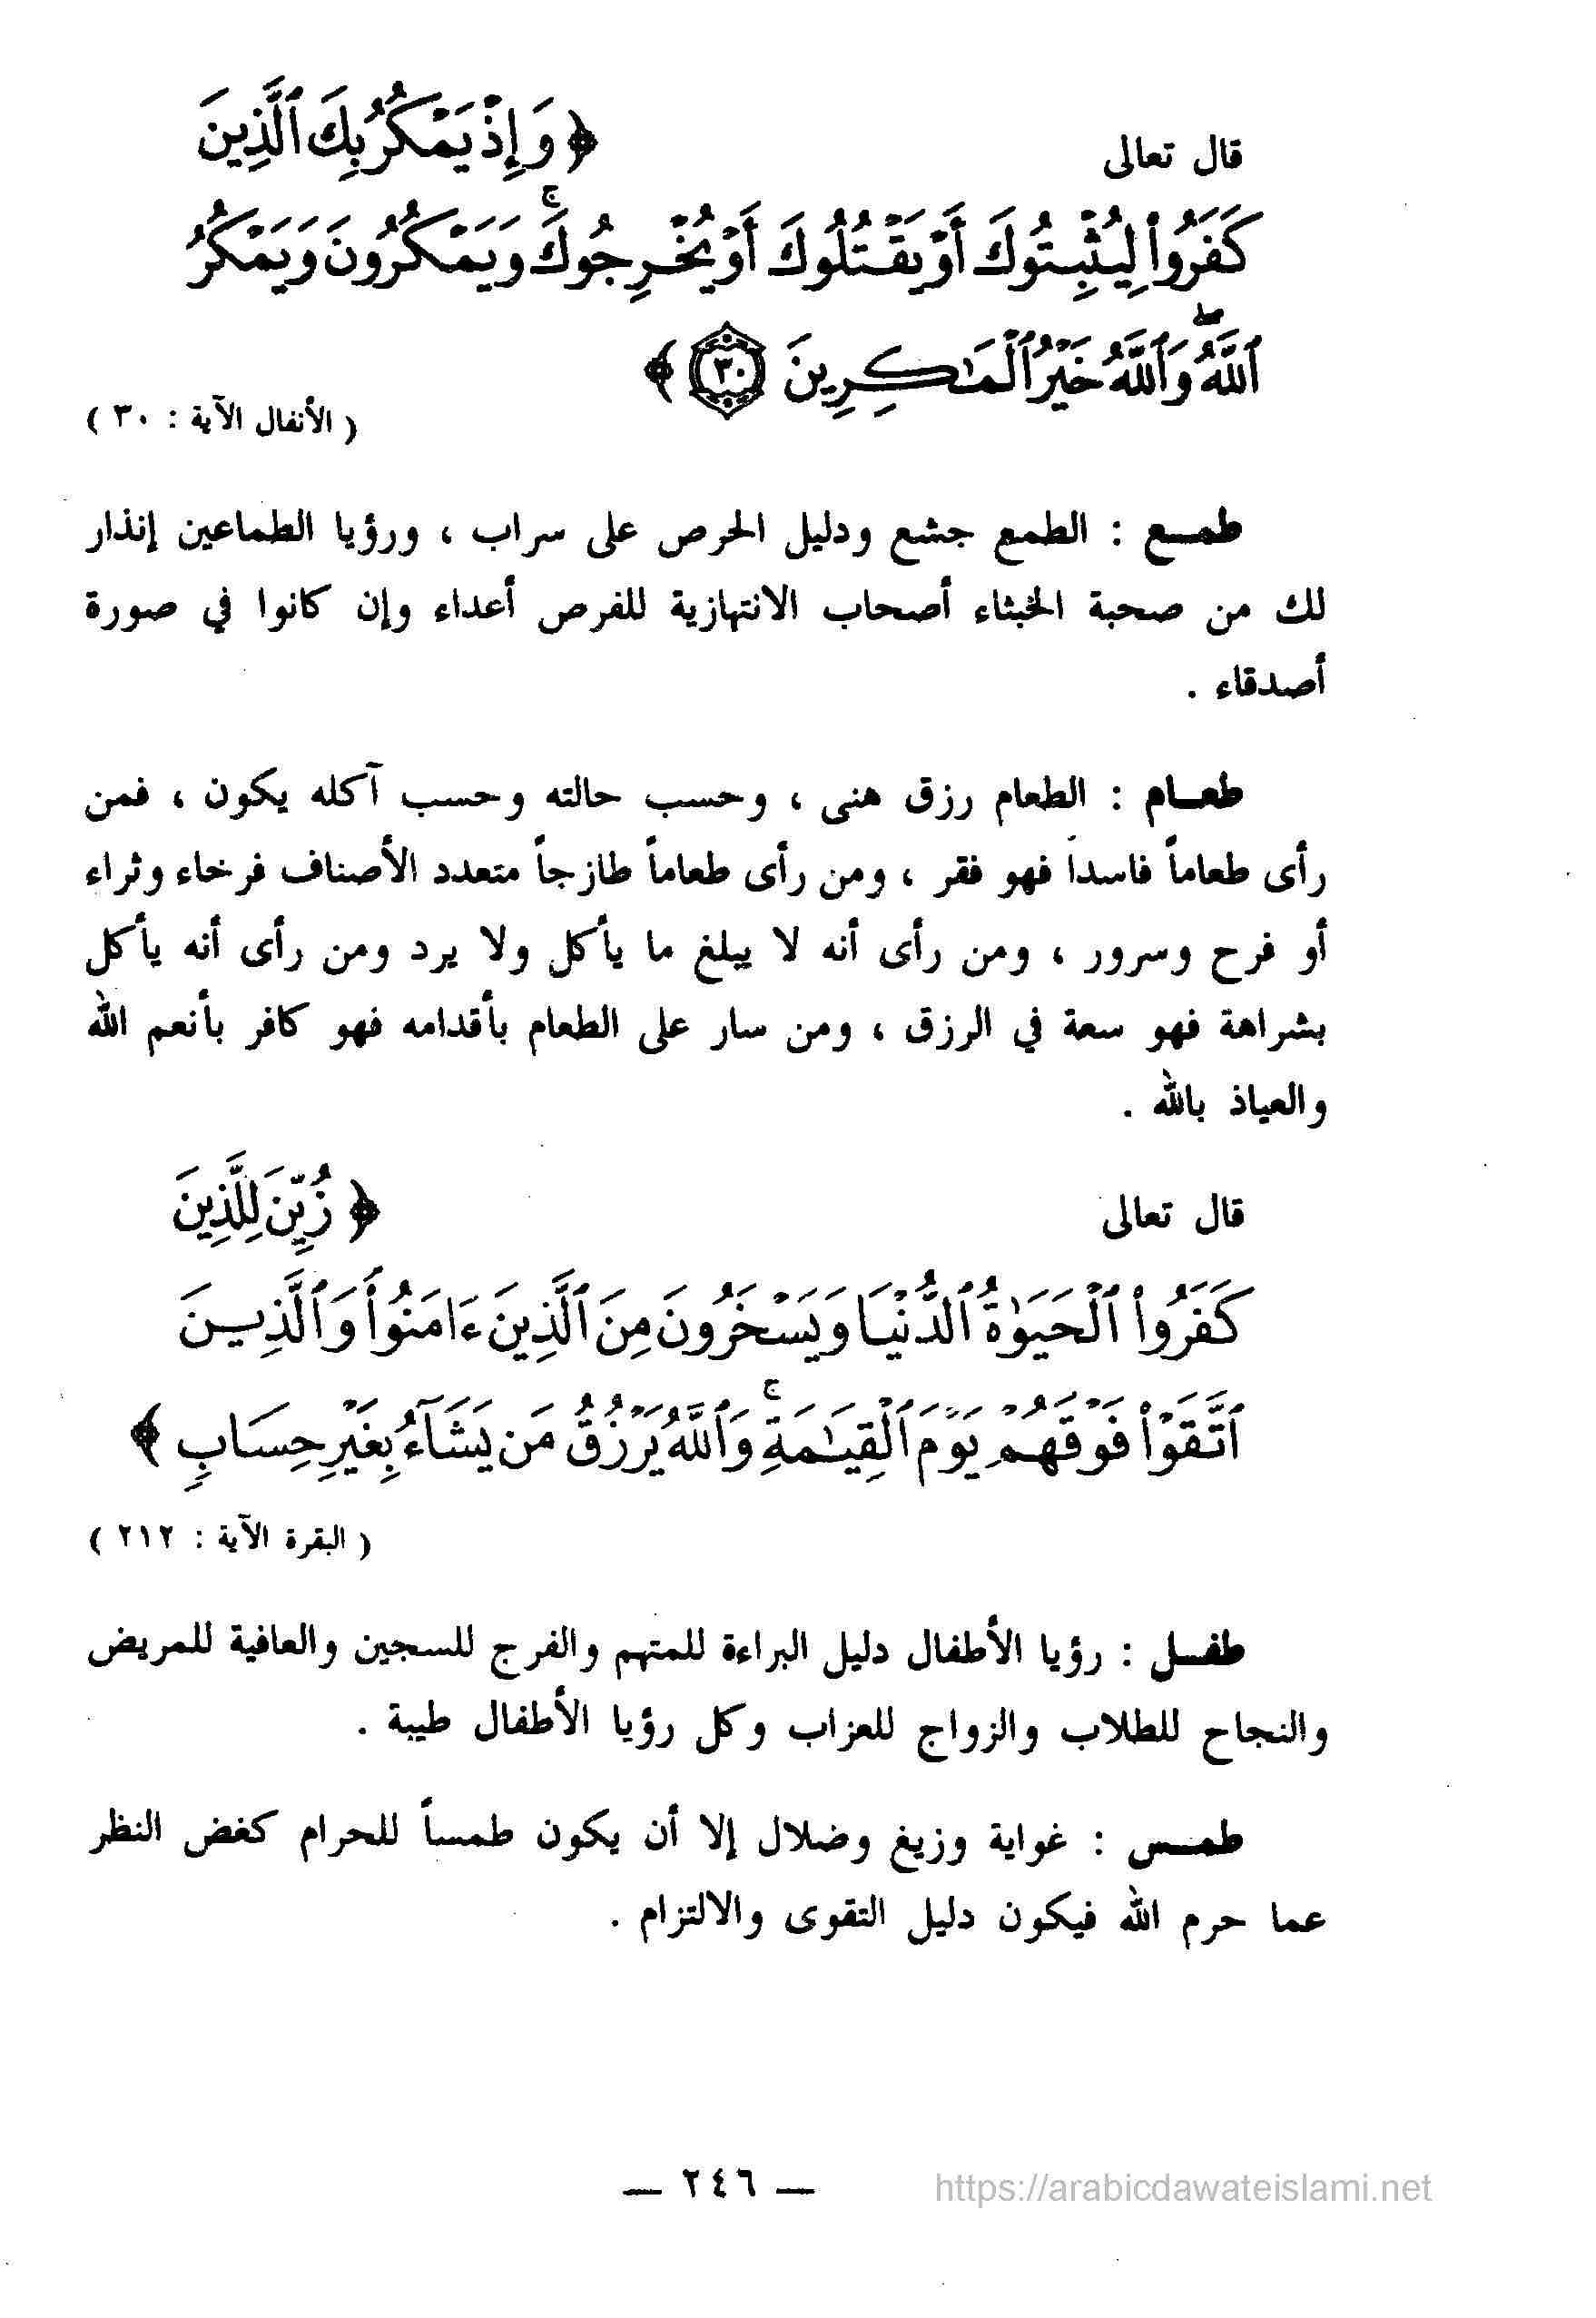 قال تعالى ﴿ وَإِذْ يَمْكُرُ بِكَ ٱلَّذِينَ
كَفَرُوا۟ لِيُثْبِتُوكَ أَوْ يَقْتُلُوكَ أَوْ يُخْرِجُوكَ ۚ وَيَمْكُرُونَ وَيَمْكُرُ
ٱللَّهُ ۖ وَٱللَّهُ خَيْرُ ٱلْمَـٰكِرِينَ ٣٠ ﴾
( الأنفال الآية : ٣٠ )
طمـع : الطمع جشع ودليل الحرص على سراب ، ورؤيا الطماعين إنذار
لك من صحبة الخبثاء أصحاب الانتهازية للفرص أعداء وإن كانوا في صورة
أصدقاء .
طعـام : الطعام رزق هنى ، وحسب حالته وحسب آكله يكون ، فمن
رأى طعاماً فاسداً فهو فقر ، ومن رأى طعاماً طازجاً متعدد الأصناف فرخاء وثراء
أو فرح وسرور ، ومن رأى أنه لا يبلغ ما يأكل ولا يرد ومن رأى أنه يأكل
بشراهة فهو سعة في الرزق ، ومن سار على الطعام بأقدامه فهو كافر بأنعم الله
والعياذ بالله .
قال تعالى ﴿ زُيِّنَ لِلَّذِينَ
كَفَرُوا۟ ٱلْحَيَوٰةُ ٱلدُّنْيَا وَيَسْخَرُونَ مِنَ ٱلَّذِينَ ءَامَنُوا۟ وَٱلَّذِينَ
ٱتَّقَوْا۟ فَوْقَهُمْ يَوْمَ ٱلْقِيَـٰمَةِ ۚ وَٱللَّهُ يَرْزُقُ مَن يَشَآءُ بِغَيْرِ حِسَابٍ ﴾
( البقرة الآية : ٢١٢ )
طفـل : رؤيا الأطفال دليل البراءة للمتهم والفرج للسجين والعافية للمريض
والنجاح للطلاب والزواج للعزاب وكل رؤيا الأطفال طيبة .
طمـس : غواية وزيغ وضلال إلا أن يكون طمساً للحرام كغض النظر
عما حرم الله فيكون دليل التقوى والالتزام .
— ٢٤٦ —
https://arabicdawateislami.net